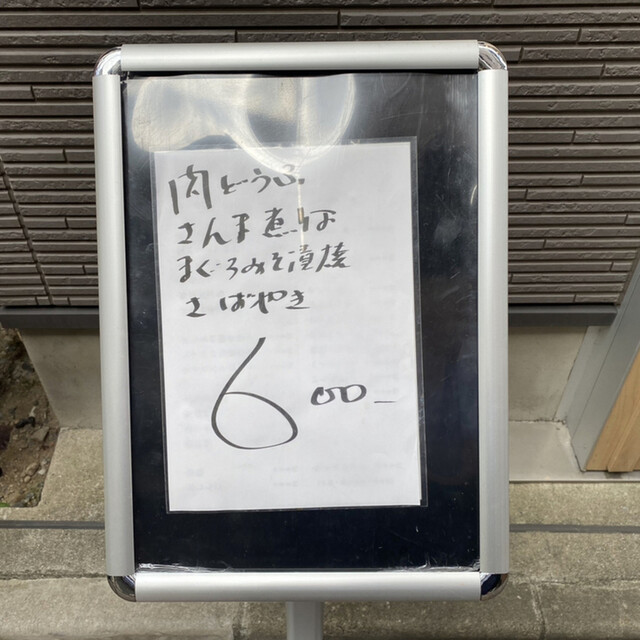 肉どうふ
さんま煮つけ
まぐろみそ漬焼
さばやき
600-